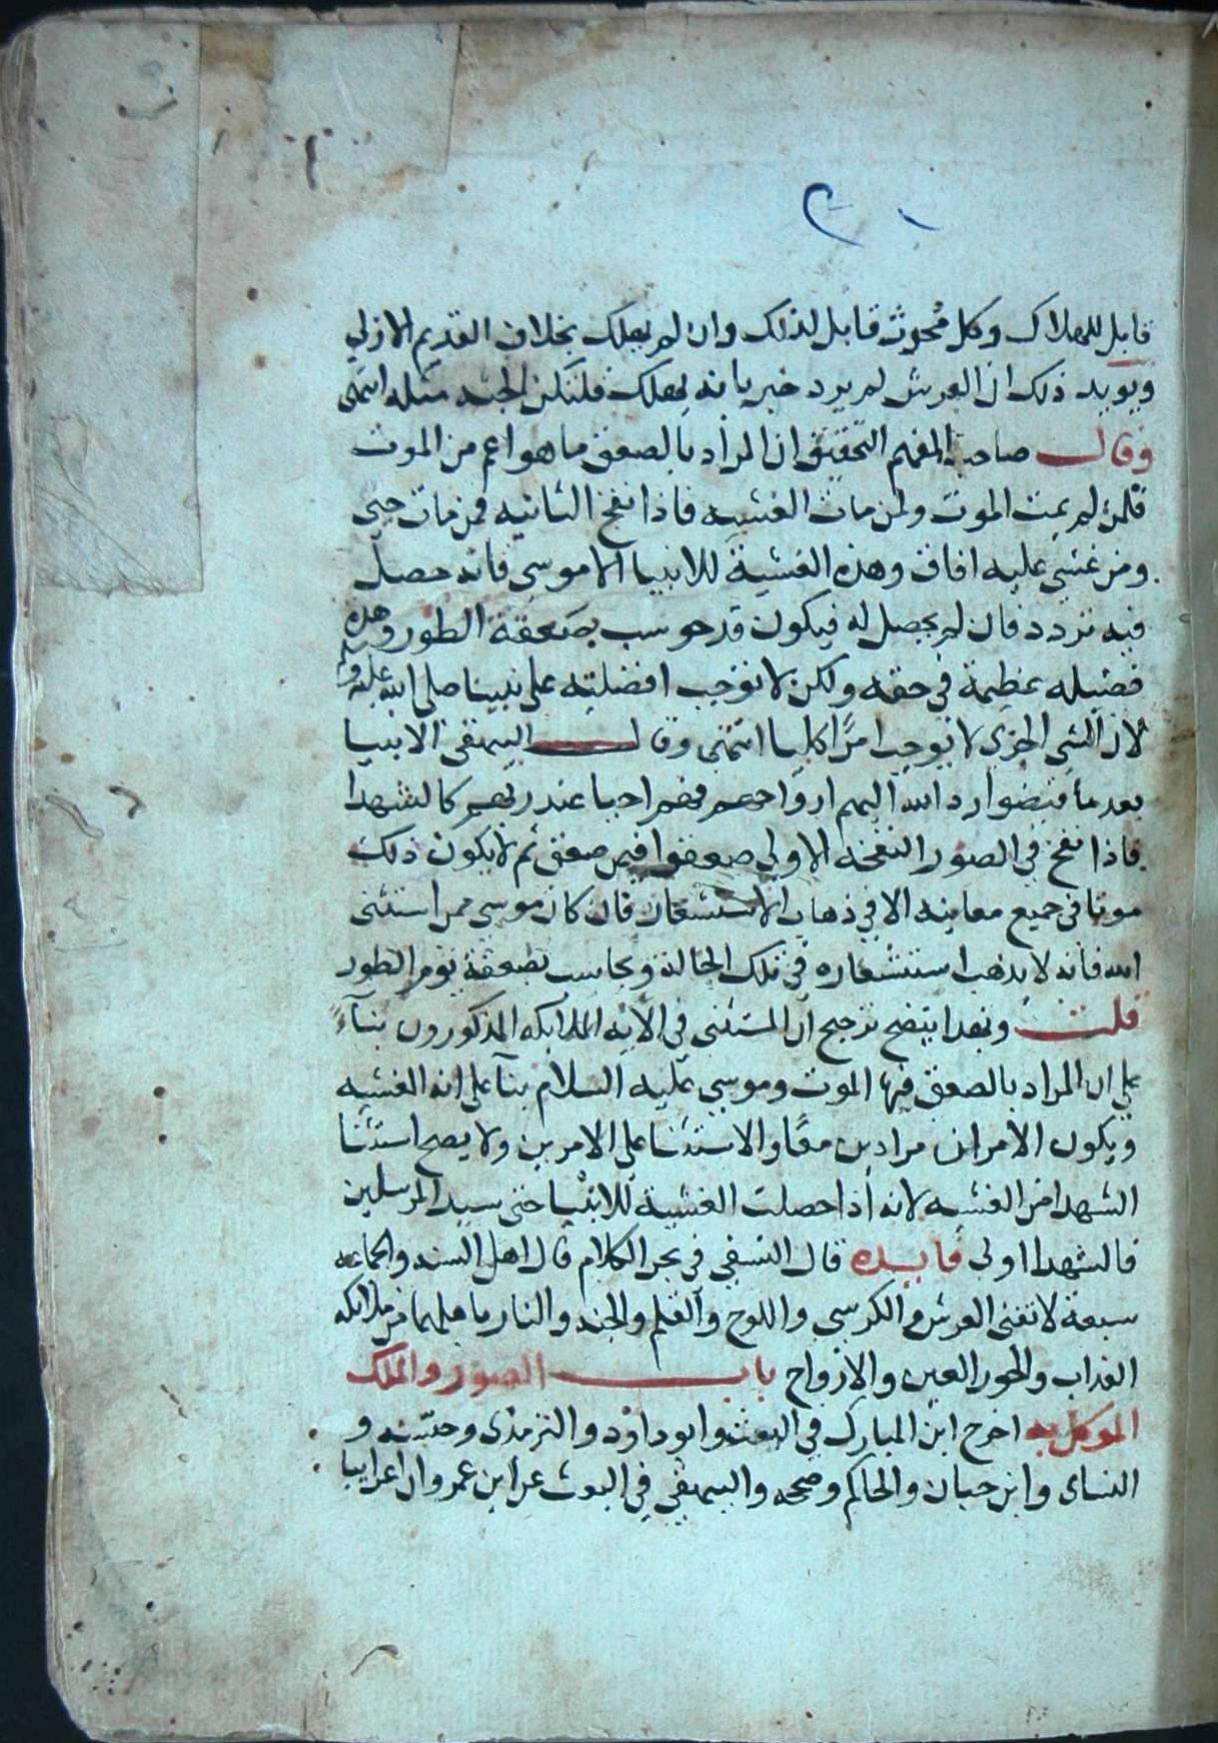 قابل للهلاك وكل محدث قابل لذلك وان لم يهلك بخلاف القديم الازلي
ويويد ذلك ان العرش لم يرد خبر بانه يهلك فلتكن الجنه مثله انتهى
وقال صاحب المفهم التحقيق ان المراد بالصعق ما هو اعم من الموت
فلمن لم يمت الموت ولمن مات الغشيه فاذا نفخ الثانيه فمن مات حيي
ومن غشي عليه افاق وهذه الغشية للانبيا الا موسى فانه حصل
فيه تردد فان لم يحصل له فيكون قد حوسب بصعقة الطور وهذه
فضيله عظيمة في حقه ولكن لا توجب افضليته على نبينا صلى الله عليه و
لان الشي الجزى لا يوجب امرًا كليا انتهى وقال البيهقى الانبيا
بعد ما قبضوا رد الله اليهم ارواحهم فهم احيا عند ربهم كالشهدا
فاذا نفخ في الصور النفخه الاولى صعقوا فيمن صعق ثم لا يكون ذلك
موتا في جميع معانيه الا في ذهاب الاستشعار فان كان موسى ممن استثنى
الله فانه لا يذهب استشعاره في تلك الحالة ويحاسب بصعقة يوم الطور
قلت وبهذا يتضح ترجيح ان المستثنى في الايه الملايكه المذكورون بنآءً
على ان المراد بالصعق فيها الموت وموسى عليه السلام بنآ على انه الغشيه
ويكون الامران مرادين معًا والاستثنا على الامرين ولا يصح استثنا
الشهدا من الغشيه لانه اذا حصلت الغشية للانبيا حتى سيد المرسلين
فالشهدا اولى فايده قال النسفي في بحر الكلام قال اهل السنه والجماعه
سبعة لا تفنى العرش والكرسي واللوح والقلم والجنه والنار باهلهما من ملايكه
العذاب والحور العين والارواح باب الصور والملك
الموكل به اخرج ابن المبارك في البعث وابو داود والترمذى وحسنه و
النساى وابن حبان والحاكم وصححه والبيهقي في البعث عن ابن عمرو ان اعرابيا